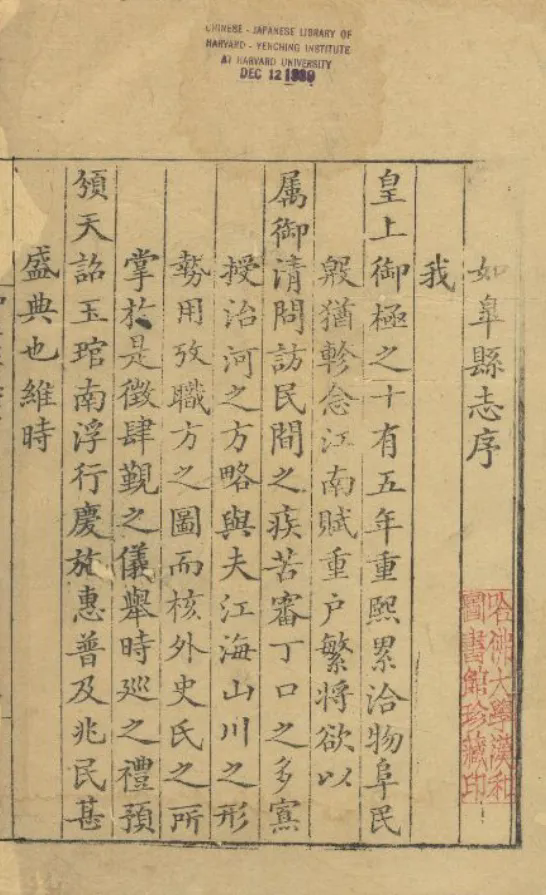 CHINESE - JAPANESE LIBRARY OF
HARVARD - YENCHING INSTITUTE
AT HARVARD UNIVERSITY
DEC 12
如皐縣志序
哈佛大學漢和
圖書館珍藏印
我
皇上御極之十有五年重熙累洽物阜民
殷猶軫念江南賦重户繁將欲以
属御清問訪民間之疾苦審丁口之多寡
授治河之方略與夫江海山川之形
勢用攷職方之圖而核外史氏之所
掌於是徵肆覲之儀舉時廵之禮預
頒天詔玉琯南浮行慶施惠普及兆民甚
盛典也維時